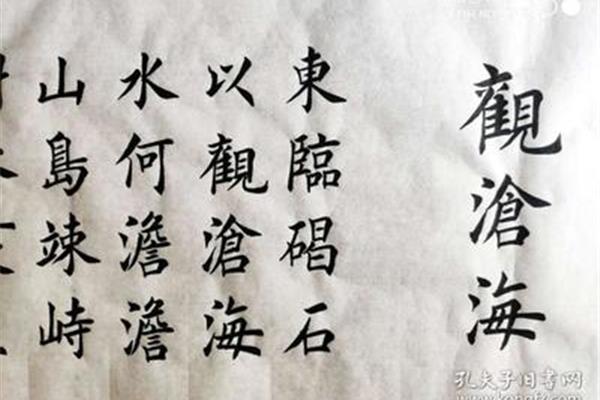 觀滄海
東臨碣石
以觀滄海
水何澹澹
山島竦峙
孔夫子旧书网